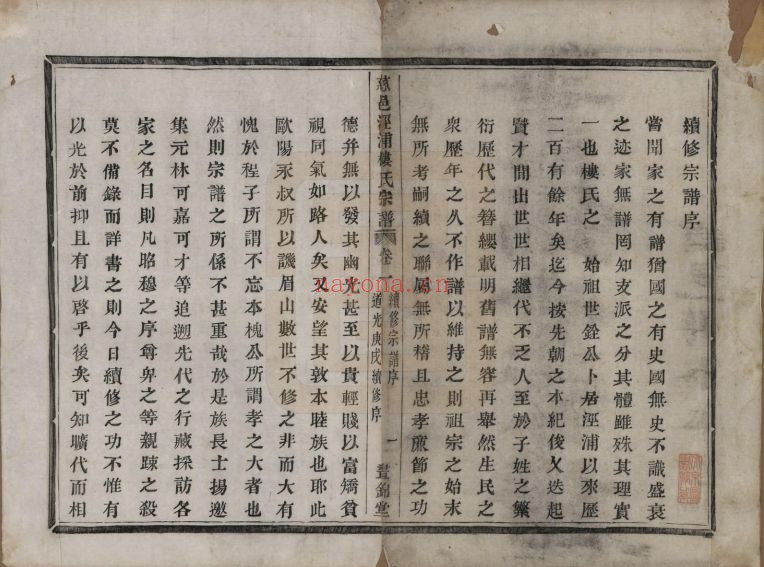 續修宗譜序
嘗聞家之有譜猶國之有史國無史不識盛衰
之迹家無譜罔知支派之分其體雖殊其理實
一也樓氏之　始祖世銓公卜居涇浦以來歷
二百有餘年矣迄今按先朝之本紀俊乂迭起
賢才間出世世相繼代不乏人至於子姓之蕃
衍歷代之簪纓載明舊譜無容再舉然生民之
衆歷年之久不作譜以維持之則祖宗之始末
無所考嗣續之聯屬無所稽且忠孝廉節之功
慈邑涇浦樓氏宗譜　卷一　續修宗譜序　道光庚戌續修序　一　晝錦堂
德并無以發其幽光甚至以貴輕賤以富矯貧
視同氣如路人矣又安望其敦本睦族也耶此
歐陽永叔所以譏眉山數世不修之非而大有
愧於程子所謂不忘本槐公所謂孝之大者也
然則宗譜之所係不甚重哉於是族長士揚邀
集元林可嘉可才等追遡先代之行藏採訪各
家之名目則凡昭穆之序尊卑之等親疎之殺
莫不備錄而詳書之則今日續修之功不惟有
以光於前抑且有以啓乎後矣可知曠代而相
nayona.cn